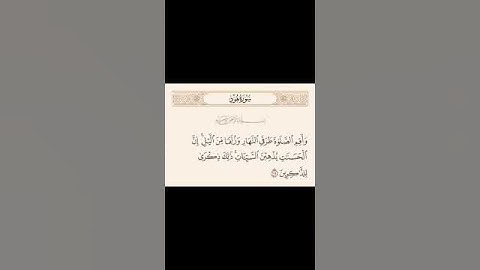 سُورَةُ هُودٍ
بِسْمِ اللَّهِ الرَّحْمَٰنِ الرَّحِيمِ
وَأَقِمِ ٱلصَّلَوٰةَ طَرَفَىِ ٱلنَّهَارِ وَزُلَفًا مِّنَ ٱلَّيْلِ ۚ إِنَّ
ٱلْحَسَنَٰتِ يُذْهِبْنَ ٱلسَّيِّـَٔاتِ ۚ ذَٰلِكَ ذِكْرَىٰ
لِلذَّٰكِرِينَ